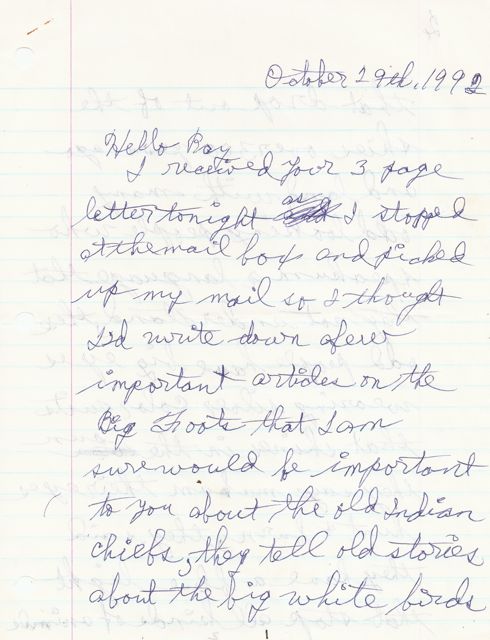 October 29th, 1992
Hello Ray
I received your 3 page
letter tonight as I stopped
at the mail box and picked
up my mail so I thought
I'd write down a few
important articles on the
Big Foots that I am
sure would be important
to you about the old Indian
chiefs, they tell old stories
about the big white birds
1